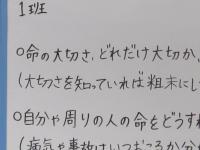 1班
○命の大切さ、どれだけ大切か、
(大切さを知っていれば粗末にし
○自分や周りの人の命をどうす
(病気や事故はいつおこるか分か